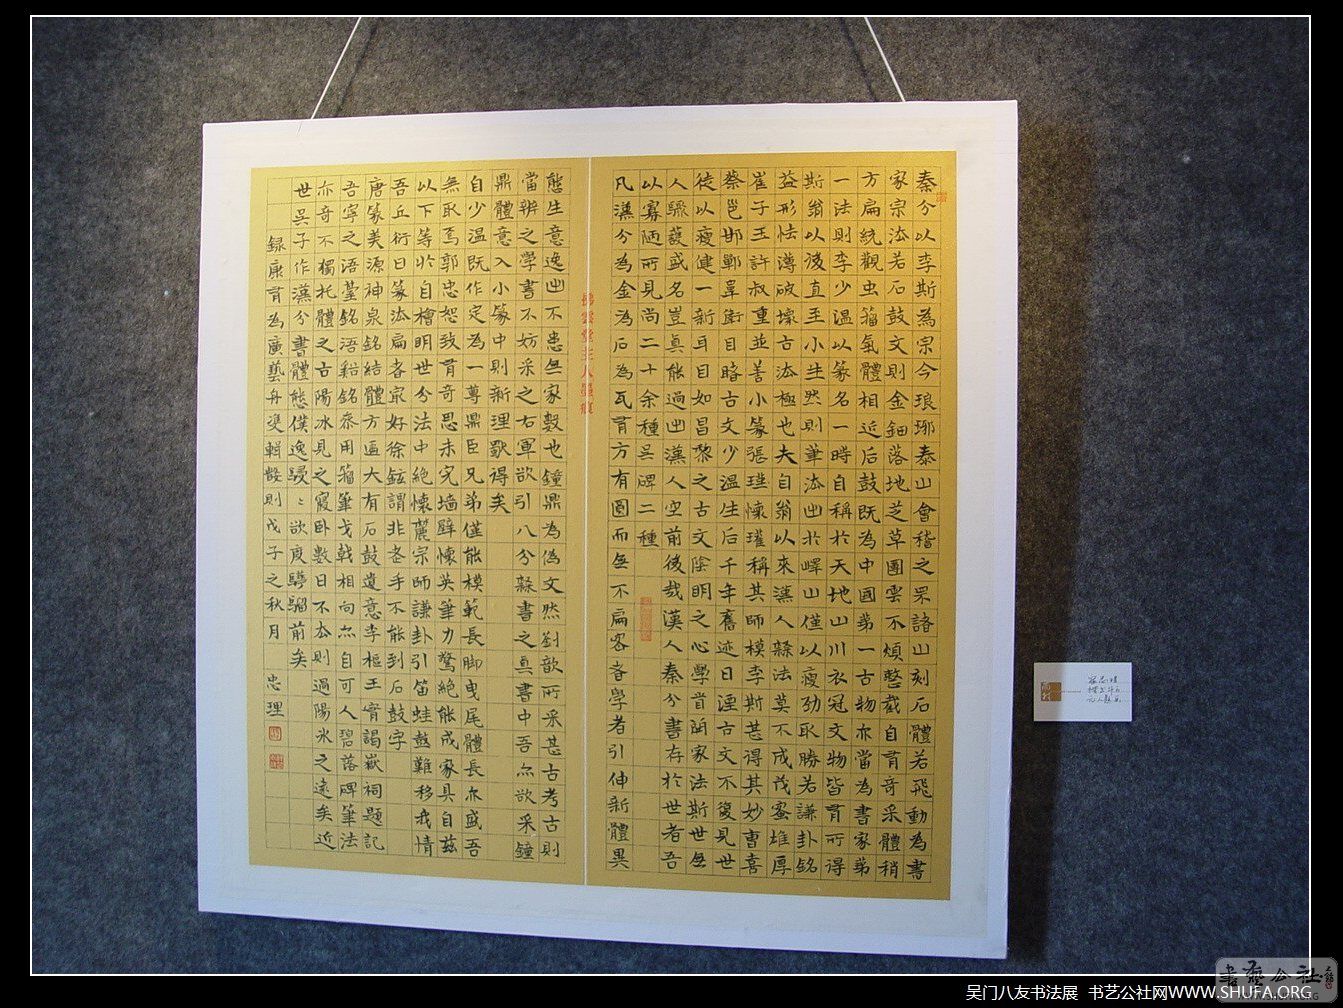 秦分以李斯為宗今琅琊泰山會稽之罘諸山刻石體若飛動為書
家宗法若石鼓文則金鈿落地芝草團雲不煩整裁自有奇采體稍
方扁統觀虫籀氣體相近后鼓既為中國第一古物亦當為書家第
一法則李少溫以篆名一時自稱於天地山川衣冠文物皆有所得
斯翁以後直至小生然則筆法出於嶧山僅以瘦劲取勝若謙卦銘
益形怯薄破壞古法極也夫自翁以來漢人隸法莫不成茂蜜雄厚
崔子玉許叔重並善小篆張璡懷瓘稱其師模李斯甚得其妙曹喜
蔡邕邯鄲韋衛目略古文少溫生后千年舊迹日湮古文不復見世
徒以瘦健一新耳目如昌黎之古文陰明之心學首開家法斯世無
人驟護盛名豈真能過出漢人空前後哉漢人秦分書存於世者吾
以寡陋所見尚二十余種吳碑二種
凡漢分為金為石為瓦有方有圓而無不扁客者學者引伸新體異
態生意逸出不患無家數也鐘鼎為偽文然劉歆所采甚古考古則
當辨之學書不妨采之右軍欲引八分隸書之真書中吾亦欲采鐘
鼎體意入小篆中則新理歐得矣
自少溫既作定為一尊鼎臣兄弟僅能模範長脚曳尾體長亦盛吾
無取焉郭忠恕致有奇思未完墙壁懷英筆力驚絕能成家具自兹
以下等於自檜明世分法中絕懷麓宗師謙卦引笛蛙鼓難移我情
吾丘衍曰篆法扁者最好徐鉉謂非老手不能到石鼓字
唐篆美源神泉銘結體方匾大有石鼓遺意李樞王宥謁嶽祠題記
吾寧之浯臺銘浯谿銘叅用籀筆戈戟相向亦自可人碧落碑筆法
亦奇不獨托體之古陽冰見之寢卧數日不去則過陽冰之遠矣近
世吳子作漢分書體態僕逸骎々欲度驊騮前矣
録康有為廣藝舟雙輯數則戊子之秋月 忠理
吴门八友书法展 书艺公社网WWW.SHUFA.ORG
書藝公社